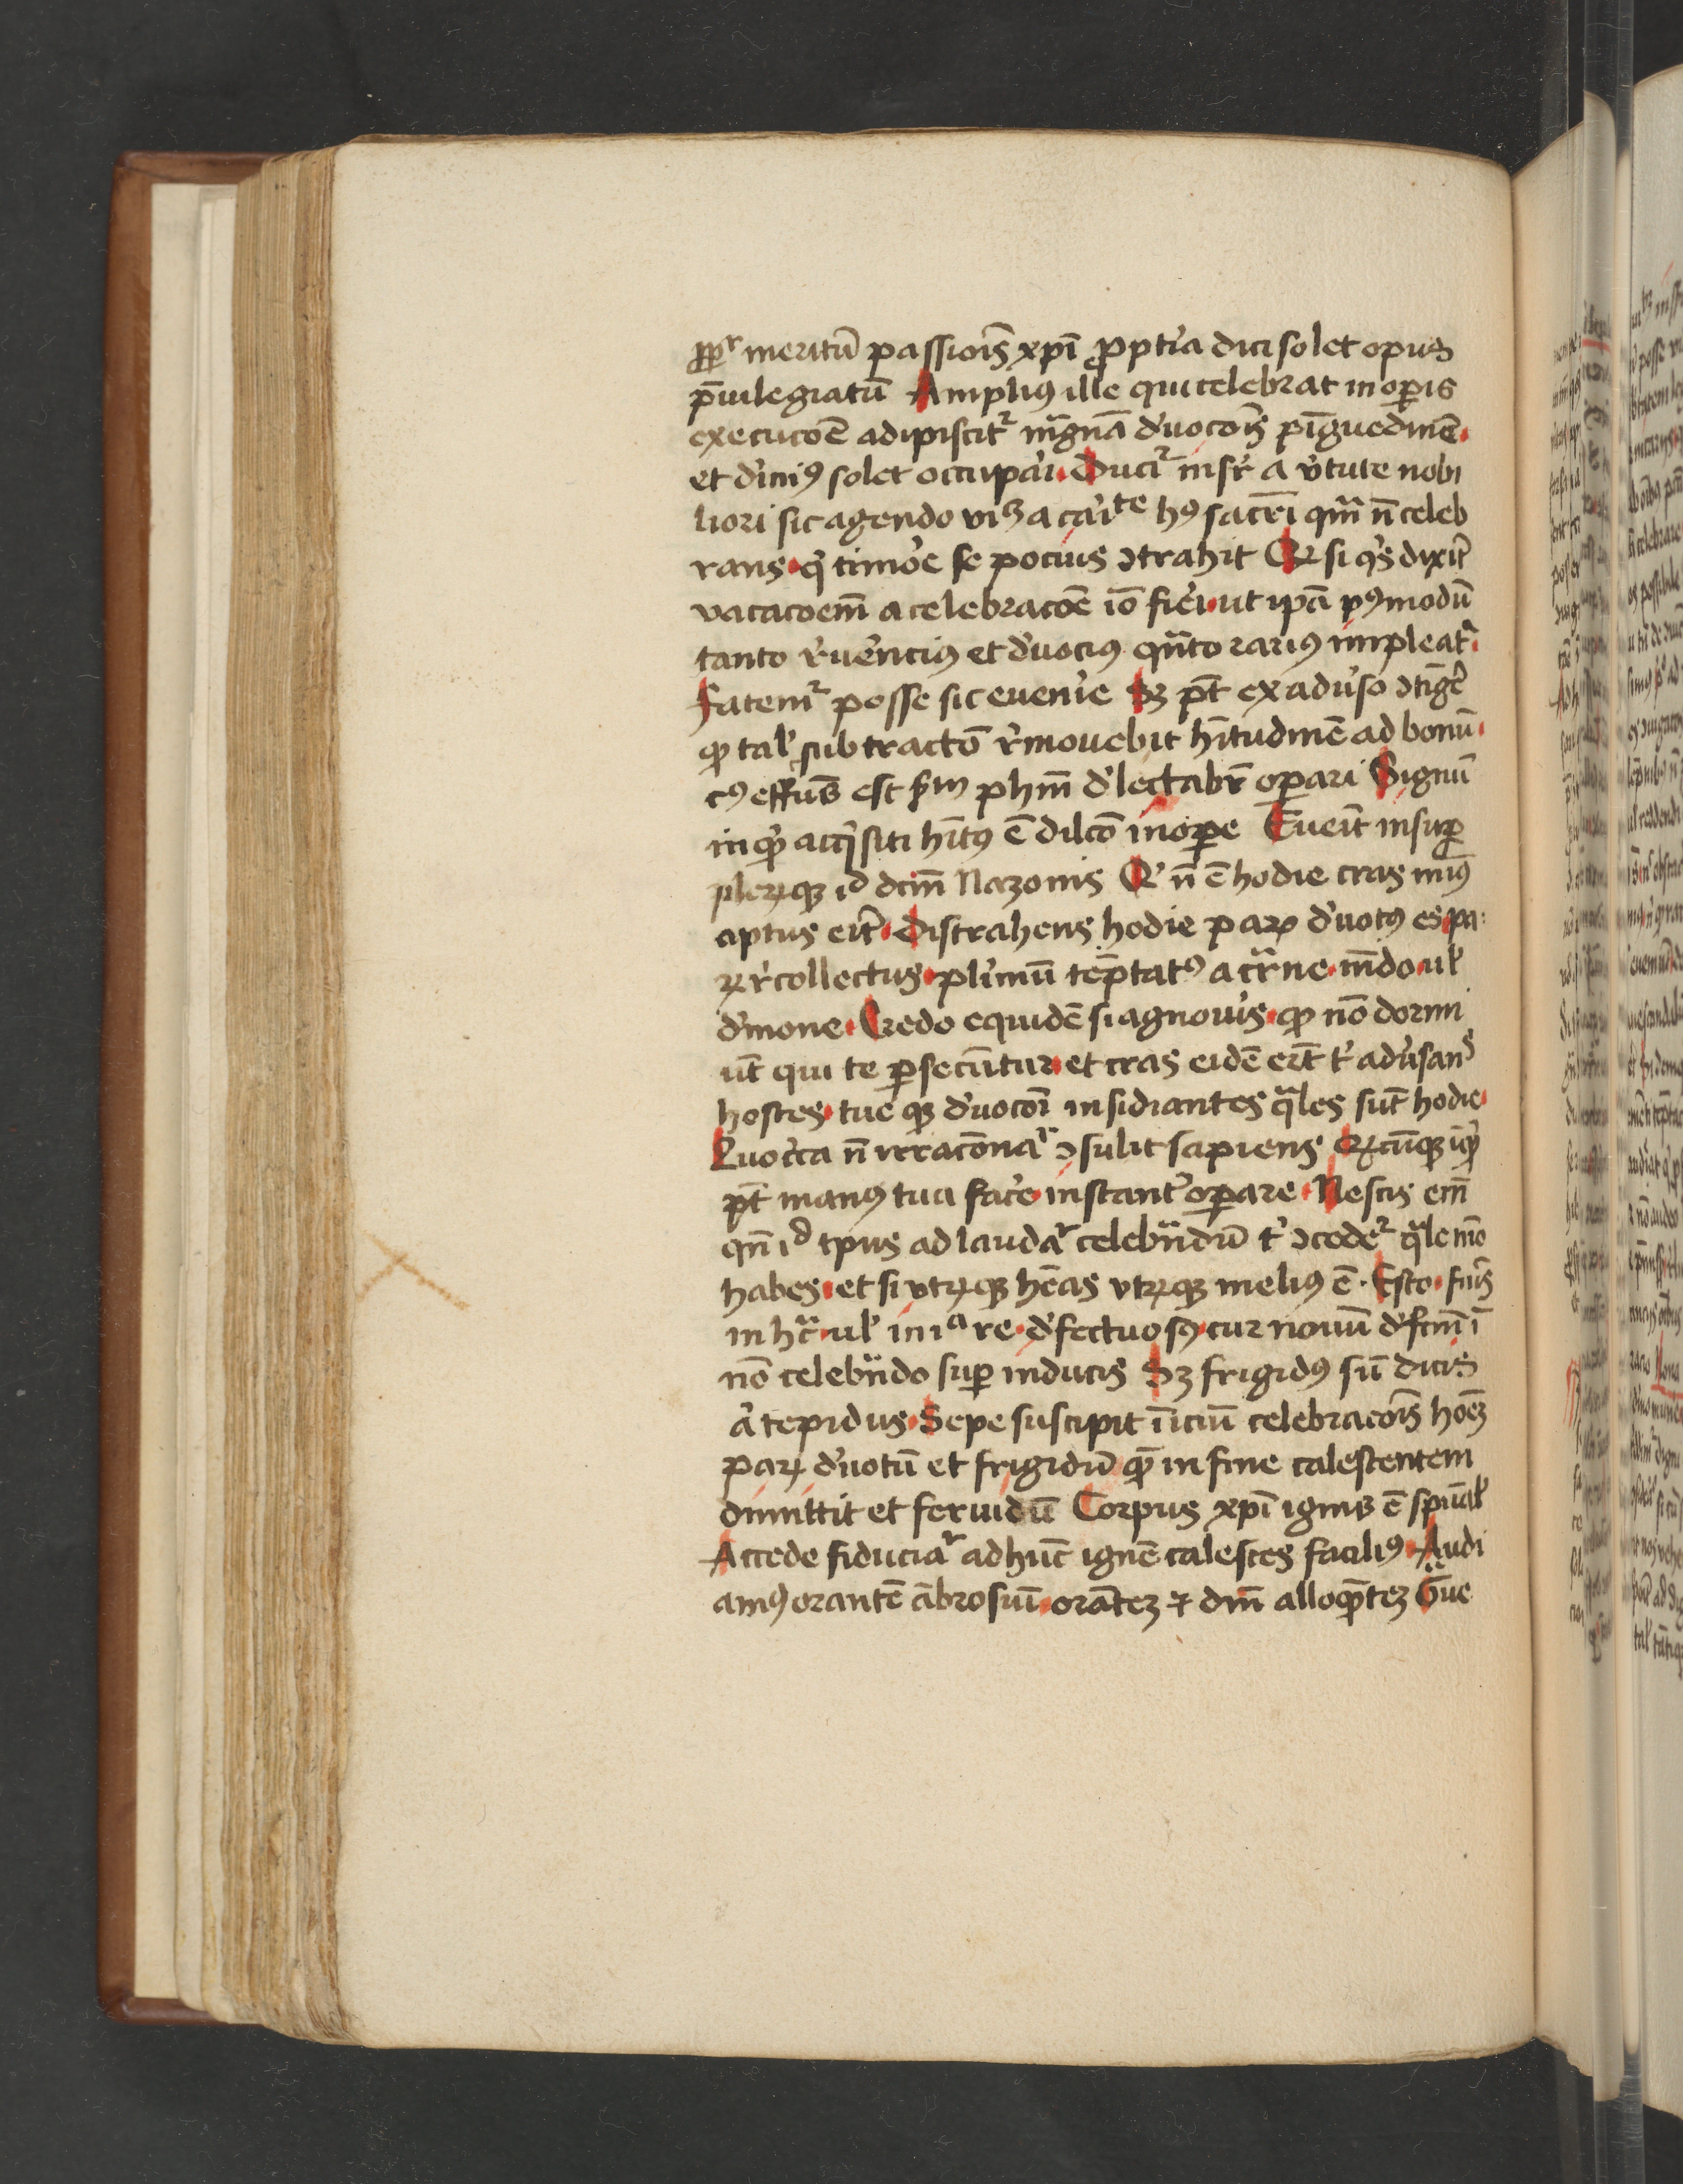 ꝓpt᷑ meritū passiōis xp̄i ꝓpt̓ia dici solet opus
p̄uilegiatū Ampliꝰ ille qui celebrat in oꝑis
execucōe adipiscit᷑ mag̃nā d̓uocōis pīguedinē
et d̓iniꝰ solet occupa̓i Duci᷑ insr̓ a v̓tute nobi
liori sic agendo viꝫ a cai̓te hꝰ sacrī qm̄ n̄ celeb
rans q̓ timo̓e se pocius ꝯtrahit Qꝛ si qͥs dixit̓
vacacōem a celebracōe iō fie̓i ut ip̄a pꝰmodū
tanto r̓ue̓nciꝰ et d̓uociꝰ qn̄to rariꝰ impleat᷑
fatem᷑ posse sic eueni̓e Sꝫ pōt ex adu̓so ꝯtīge̓
ꝙ tal̓ subtractō r̓mouebit hītudinē ad bonū
cꝰ effūs est sm̄ phm̄ d̓lectabr̓ oꝑari Signū
inq̓ acq̓siti hītꝰ ē dilcō in oꝑe Eueīt insuꝑ
pleꝛꝙ id dcm̄ Nazonis Qͥ n̄ ē hodie cras minꝰ
aptus eit̓ Distrahens hodie paꝝ d̓uotꝰ es pa
ꝝ r̓collectus pl̓imū tēptatꝰ a cr̄ne mn̄do ul̓
d̓mone Credo equidē si agnoui̓s ꝙ nō dormi
ūt qui te ꝑsecūtur et cras eidē er̄t t̓ adu̓san̄
hostes tue qꝫ d̓uocōi insidiantes q̄les sūt hodie
Quoc̓ca n̄ irracōna᷑ ꝯsulit sapiens qꝛcūqꝫ iq̓
pōt manꝰ tua fac̓e instant̓ oꝑare Nescis em̄
qn̄ id tp̄us ad lauda᷑ celebn̄dū t̓ ꝯcede᷑ q̄le mō
habes et si vtꝛqꝫ hēas vtꝛqꝫ meliꝰ ē Esto fuis̓
in hac̓ ul̓ in ia re d̓fectuosꝰ cur nouū d̓fcm̄ ī
nō celebn̄do suꝑ inducis Sꝫ frigidꝰ sū dicis
a̓ tepidus Sepe suscipit īiciū celebracōis hoīeꝫ
paꝝ d̓uotū et frigidū qꝫ in fine calescentem
dimittit et feruidū Corpus xp̄i ignis ē sp̄ual̓
Accede fiducia᷑ ad hūc ignē calesces faciliꝰ Audi
amꝰ orantē ābrosiū orātēꝫ ⁊ dm̄ alloquētēꝫ Gͣue